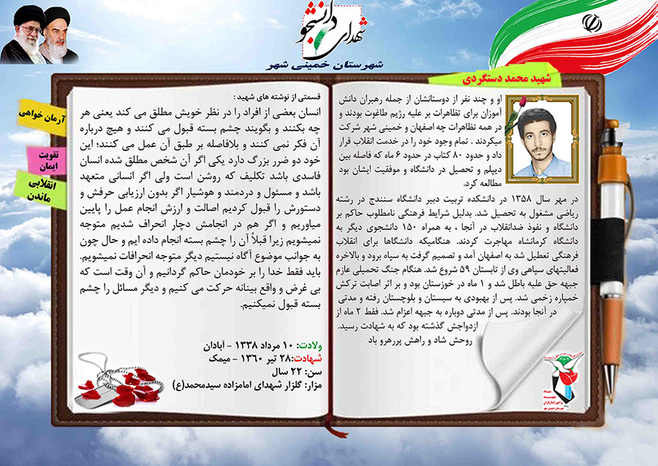 شهدای دانشجو
شهرستان خمینی شهر
شهید محمد دستگردی
او و چند نفر از دوستانشان از جمله رهبران دانش
آموزان برای تظاهرات بر علیه رژیم طاغوت بودند و
در همه تظاهرات چه اصفهان و خمینی شهر شرکت
میکردند . تمام وجود خود را در خدمت انقلاب قرار
داد و حدود ۸۰ کتاب در حدود ۶ ماه که فاصله بین
دیپلم و تحصیل در دانشگاه و موفقیت ایشان بود
مطالعه کرد.
در مهر سال ۱۳۵۸ در دانشکده تربیت دبیر دانشگاه سنندج در رشته
ریاضی مشغول به تحصیل شد. بدلیل شرایط فرهنگی نامطلوب حاکم بر
دانشگاه و نفوذ ضدانقلاب در آنجا ، به همراه ۱۵۰ دانشجوی دیگر به
دانشگاه کرمانشاه مهاجرت کردند. هنگامیکه دانشگاهها برای انقلاب
فرهنگی تعطیل شد به اصفهان آمد و تصمیم گرفت به سپاه برود و بالاخره
فعالیتهای سپاهی وی از تابستان ۵۹ شروع شد. هنگام جنگ تحمیلی عازم
جبهه حق علیه باطل شد و ۱ ماه در خوزستان بود و بر اثر اصابت ترکش
خمپاره زخمی شد. پس از بهبودی به سیستان و بلوچستان رفته و مدتی
در آنجا بودند. پس از مدتی دوباره به جبهه اعزام شد. فقط ۲ ماه از
ازدواجش گذشته بود که به شهادت رسید.
روحش شاد و راهش پررهرو باد
قسمتی از نوشته های شهید :
انسان بعضی از افراد را در نظر خویش مطلق می کند یعنی هر
چه بکنند و بگویند چشم بسته قبول می کنند و هیچ درباره
آن فکر نمی کنند و بلافاصله بر طبق آن عمل می کنند؛ این
خود دو ضرر بزرگ دارد یکی اگر آن شخص مطلق شده انسان
فاسدی باشد تکلیف که روشن است ولی اگر انسانی متعهد
باشد و مسئول و دردمند و هوشیار اگر بدون ارزیابی حرفش و
دستورش را قبول کردیم اصالت و ارزش انجام عمل را پایین
میاوریم و اگر هم در انجامش دچار انحراف شدیم متوجه
نمیشویم زیرا قبلاً آن را چشم بسته انجام داده ایم و حال چون
به جوانب موضوع آگاه نیستیم دیگر متوجه انحرافات نمیشویم.
باید فقط خدا را بر خودمان حاکم گردانیم و آن وقت است که
بی غرض و واقع بینانه حرکت می کنیم و دیگر مسائل را چشم
بسته قبول نمیکنیم.
ولادت: ۱۰ مرداد ۱۳۳۸ - آبادان
شهادت: ۲۸ تیر ۱۳۶۰ - میمک
سن: ۲۲ سال
مزار: گلزار شهدای امامزاده سیدمحمد(ع)
آرمان خواهی
تقویت
ایمان
انقلابی
ماندن